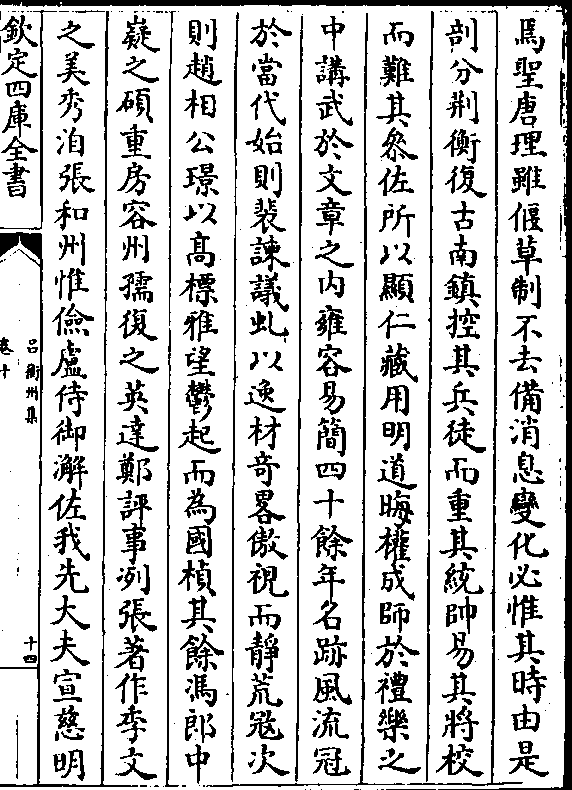 焉聖唐理雖偃草制不去備消息變化必惟其時由是
剖分荆衡復古南鎮控其兵徒而重其統帥易其將校
而難其叅佐所以顯仁藏用明道晦權成師於禮樂之
中講武於文章之内雍容易簡四十餘年名跡風流冠
於當代始則裴諫議虬以逸材奇畧傲視而靜荒寇次
則趙相公璟以髙標雅望鬱起而為國楨其餘馮郎中
嶷之碩重房容州孺復之英達鄭評事冽張著作季文
之美秀洎張和州惟儉盧侍御澥佐我先大夫宣慈明
欽定四庫全書
吕衡州集
卷十
十四